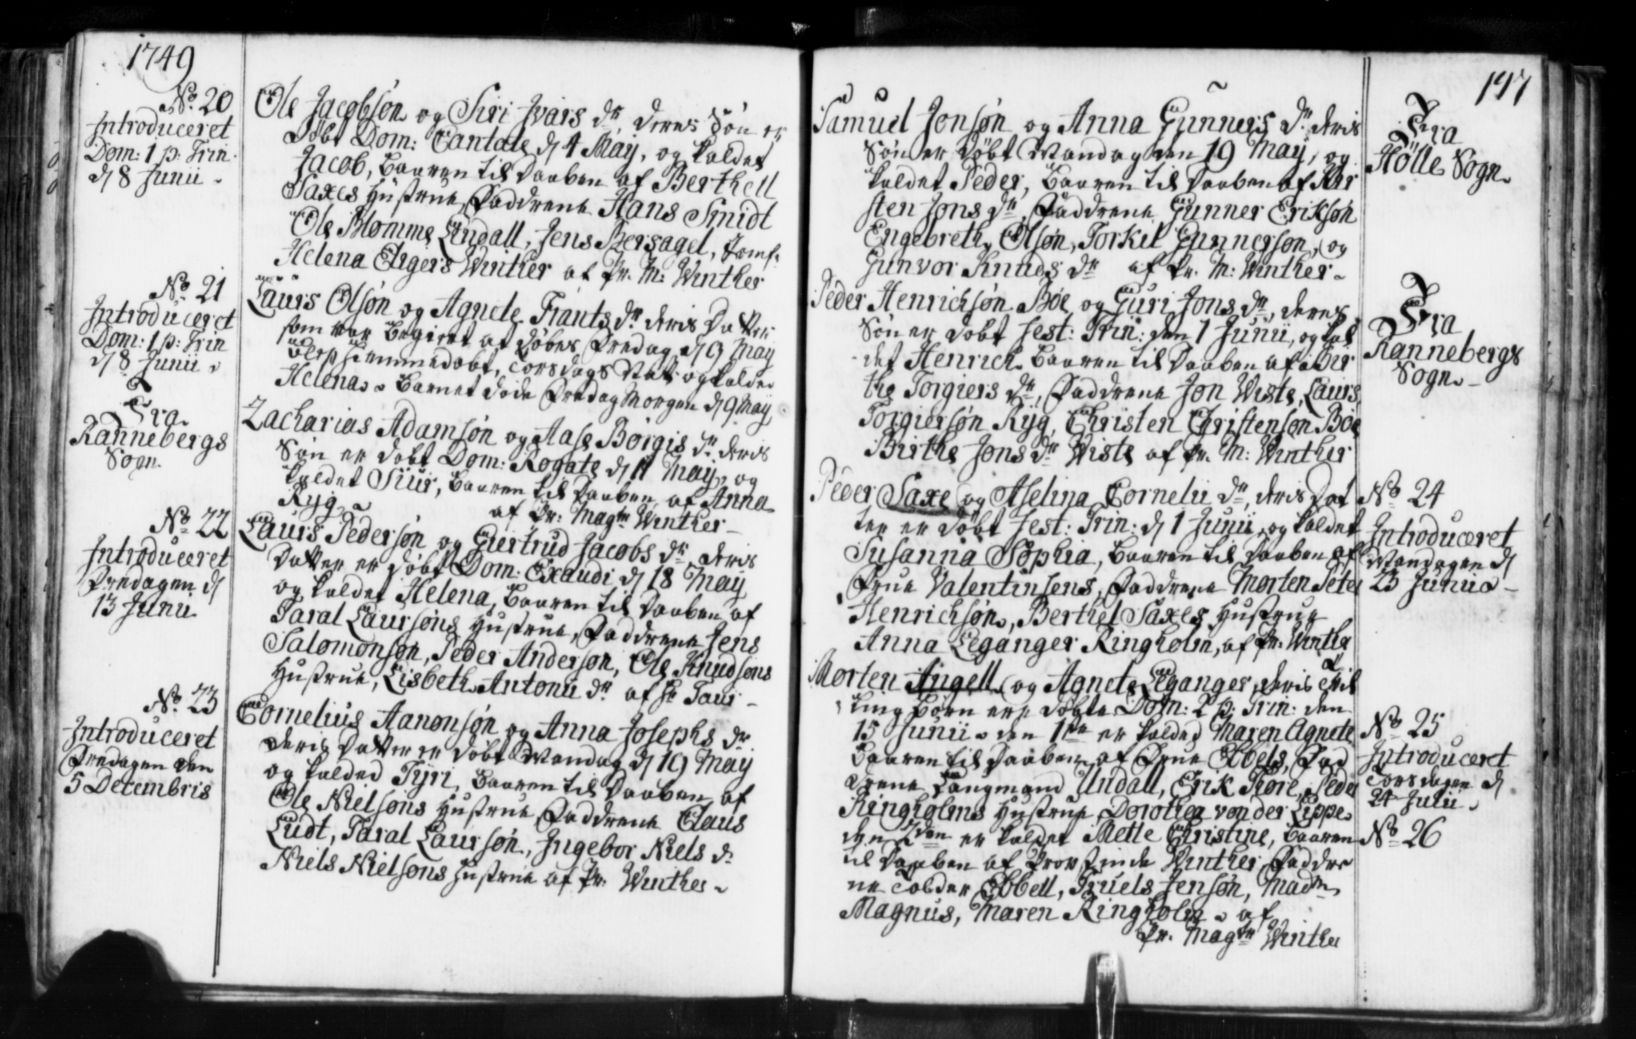 1749
No. 20
Introduceret
Dom: 1 p: Trin.
d 8 Junii
Ole Jacobsøn og Siri Ivars dr. deres Søn er
døbt Dom: Cantate d 4 May, og kaldet
Jacob, baaren til Daaben af Berthell
Saxes Hustrue, Faddrene Hans Smidt
Ole Blomme Lindall, Jens Bersagel, Jomf.
Helena Elgers Winther af Pr. M: Winther
No. 21
Introduceret
Dom: 1 p: Trin
d 8 Junii
Laurs Olsøn og Agnete Frants dr. deris Datter
som var begieret at døbes Fredag d 9 May
blef hiemmedøbt, Torsdags Nat og kalded
Helena. Barnet døde Fredag Morgen d 9 May
Fra
Rannebergs
Sogn.
Zacharias Adamsøn og Aase Børgis dr. deris
Søn er døbt Dom: Rogate d 11 May, og
kaldet Siur, baaren til Daaben af Anna
Ryg af Pr: Magtr Winther
No. 22
Introduceret
Fredagen d
13 Junii
Laurs Pedersøn og Giertrud Jacobs dr. deris
Datter er døbt Dom: Exaudi d 18 May
og kaldet Helena, baaren til Daaben af
Taral Laursøns Hustrue, Faddrene Jens
Salomonsøn, Peder Andersøn, Ole Knudsøns
Hustrue, Lisbeth Antonii dr. af Hr
No. 23
Introduceret
Fredagen den
5 Decembris
Cornelius Aanonsøn og Anna Josephs dr.
deris Datter er døbt Mandag d 19 May
og kalded Tyri, baaren til Daaben af
Ole Nielsøns Hustrue, Faddrene Claus
Ludt, Taral Laursøn, Ingebor Niels d.
Niels Nielsøns Hustrue af Pr. Winther
147
Samuel Jonsøn og Anna Gunners dr. deris
Søn er døbt Mandag den 19 May, og
kaldet Peder, baaren til Daaben af Kir
sten Jons dr. Faddrene Gunner Eriksøn
Engebreth Olsøn, Torkil Gunnersøn, og
Gunvor Knuds dr. af Pr. M: Winther
Fra
Hølle Sogn
Peder Henrichsøn Bøe og Guri Jons dr. deres
Søn er døbt Fest: Trin: den 1 Junii, og kal
det Henrich. baaren til Daaben af Bir
the Torgiers dr., Faddrene Jon Wiste, Laurs
Torgiersøn Ryg, Christen Christensøn Bøe
Birthe Jons dr. Wiste af Pr. M: Winther
Fra
Rannebergs
Sogn
Peder Saxe og Aselina Cornelii dr., deris Dat
ter er døbt Fest: Trin: d 1 Junii, og kaldet
Susanna Sophia, baaren til Daaben af
Frue Valentinsens, Faddrene Morten Peter
Henrichsøn, Berthel Saxes Hustrue
Anna Leganger Ringholm, af Pr. Winther
No. 24
Introduceret
Mandagen d
23 Junii
Morten Angell og Agnete Leganger, deris Tvil
ling Børn ere døbte Dom: 2 p: Trin: den
15 Junii. den 1ste er kalded Maren Agnete
baaren til Daaben af Frue Ebbels, Fad
drene Laugmand Undall, Erik Tiøre, Peder
Ringholms Hustrue, Dorothea von der Lippe.
den 2den er kaldet Mette Christine, baaren
til Daaben af Provstinde Winther, Faddre
ne Tolder Ebbell, Truels Jensøn, Madm.
Magnus, Maren Ringholm af
Pr. Magtr Winther
No. 25
Introduceret
Torsdagen d
24 Julii
No. 26